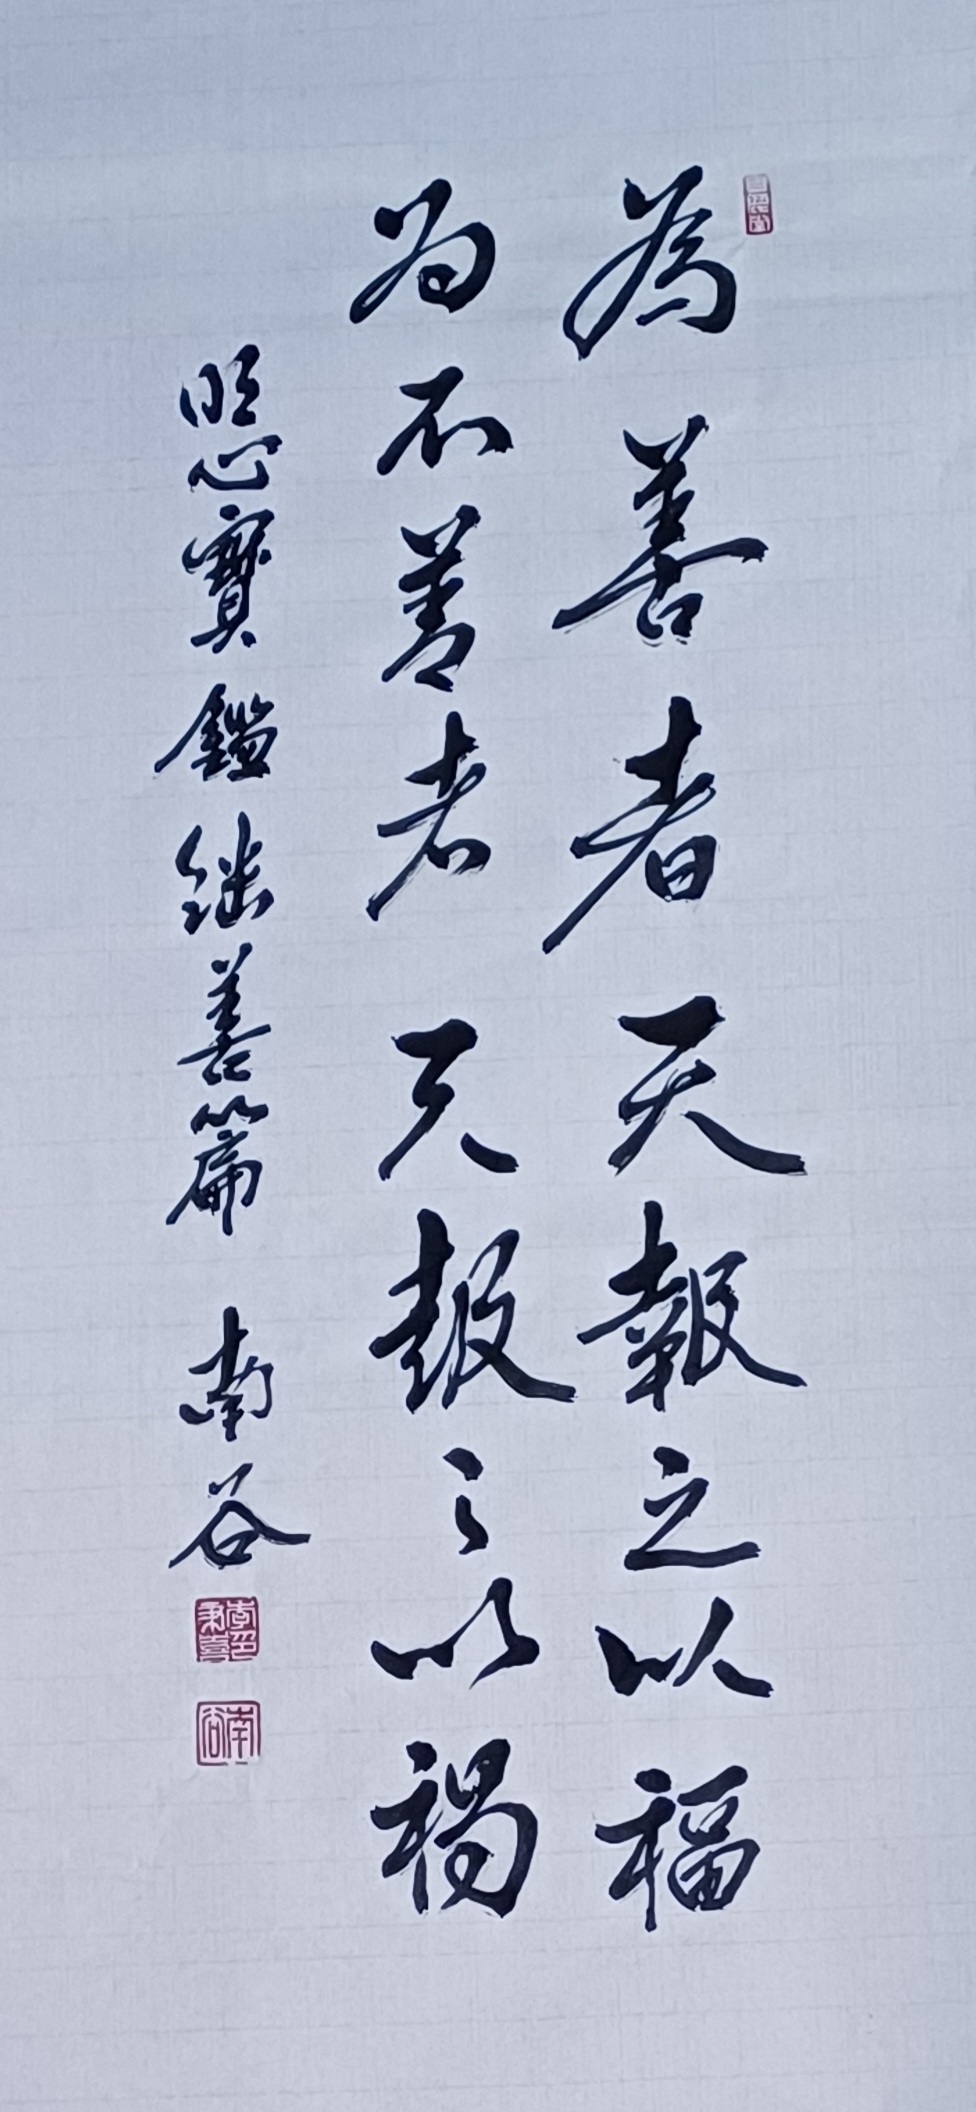 為善者天報之以福
為不善者天報之以禍
明心寶鑑 繼善篇 南谷
南谷